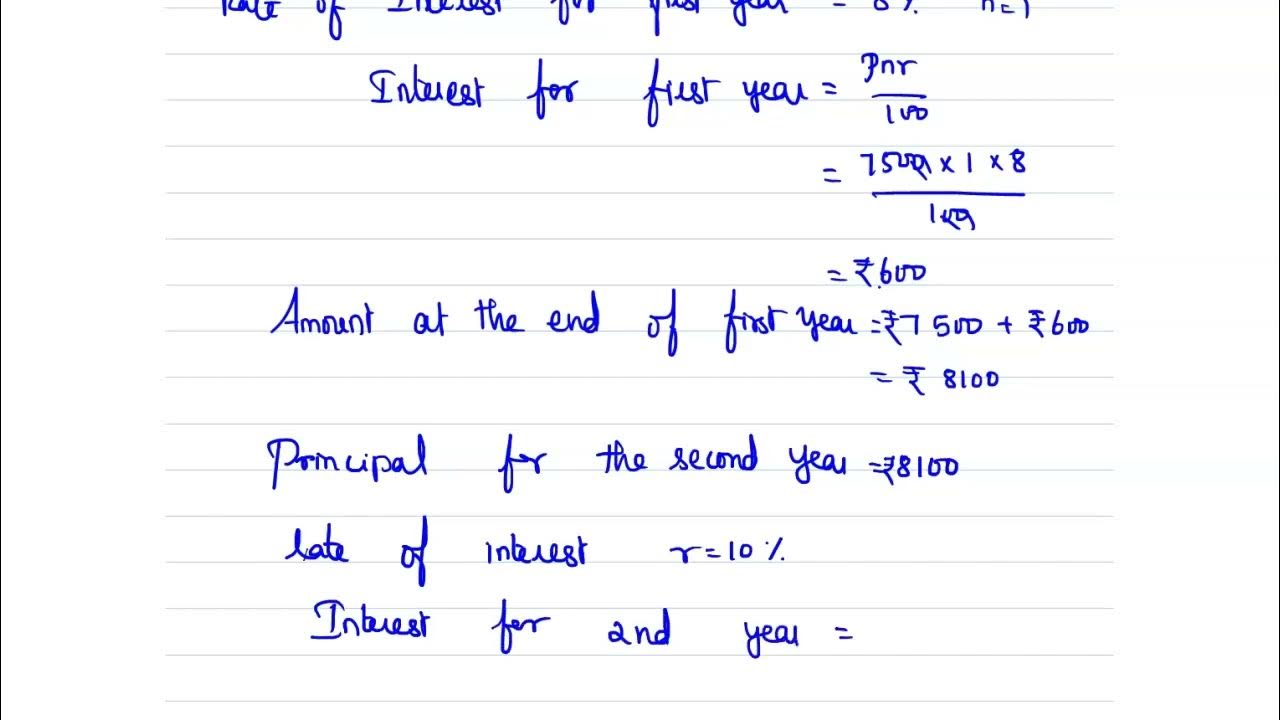 Rate of Interest for first year = 8% n=1
Interest for first year = Pnr
100
= 7500 × 1 × 8
100
= ₹600
Amount at the end of first year = ₹7500 + ₹600
= ₹ 8100
Principal for the second year = ₹8100
Rate of interest r = 10%
Interest for 2nd year =